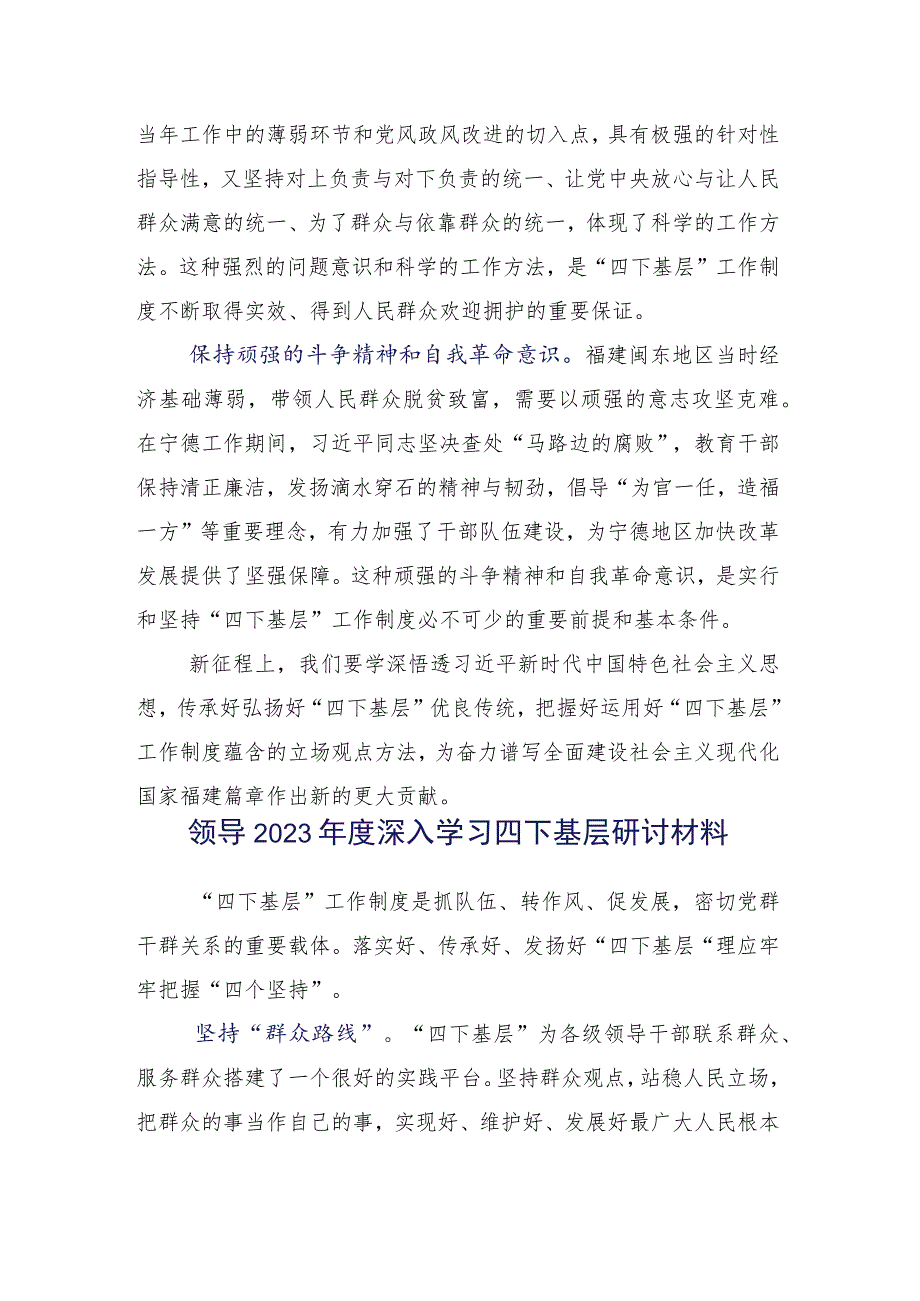 当年工作中的薄弱环节和党风政风改进的切入点，具有极强的针对性
指导性，又坚持对上负责与对下负责的统一、让党中央放心与让人民
群众满意的统一、为了群众与依靠群众的统一，体现了科学的工作方
法。这种强烈的问题意识和科学的工作方法，是“四下基层”工作制
度不断取得实效、得到人民群众欢迎拥护的重要保证。
保持顽强的斗争精神和自我革命意识。福建闽东地区当时经
济基础薄弱，带领人民群众脱贫致富，需要以顽强的意志攻坚克难。
在宁德工作期间，习近平同志坚决查处“马路边的腐败”，教育干部
保持清正廉洁，发扬滴水穿石的精神与韧劲，倡导“为官一任，造福
一方”等重要理念，有力加强了干部队伍建设，为宁德地区加快改革
发展提供了坚强保障。这种顽强的斗争精神和自我革命意识，是实行
和坚持“四下基层”工作制度必不可少的重要前提和基本条件。
新征程上，我们要学深悟透习近平新时代中国特色社会主义思
想，传承好弘扬好“四下基层”优良传统，把握好运用好“四下基层”
工作制度蕴含的立场观点方法，为奋力谱写全面建设社会主义现代化
国家福建篇章作出新的更大贡献。
领导 2023 年度深入学习四下基层研讨材料
“四下基层”工作制度是抓队伍、转作风、促发展，密切党群
干群关系的重要载体。落实好、传承好、发扬好“四下基层“理应牢
牢把握“四个坚持”。
坚持“群众路线”。“四下基层”为各级领导干部联系群众、
服务群众搭建了一个很好的实践平台。坚持群众观点，站稳人民立场，
把群众的事当作自己的事，实现好、维护好、发展好最广大人民根本